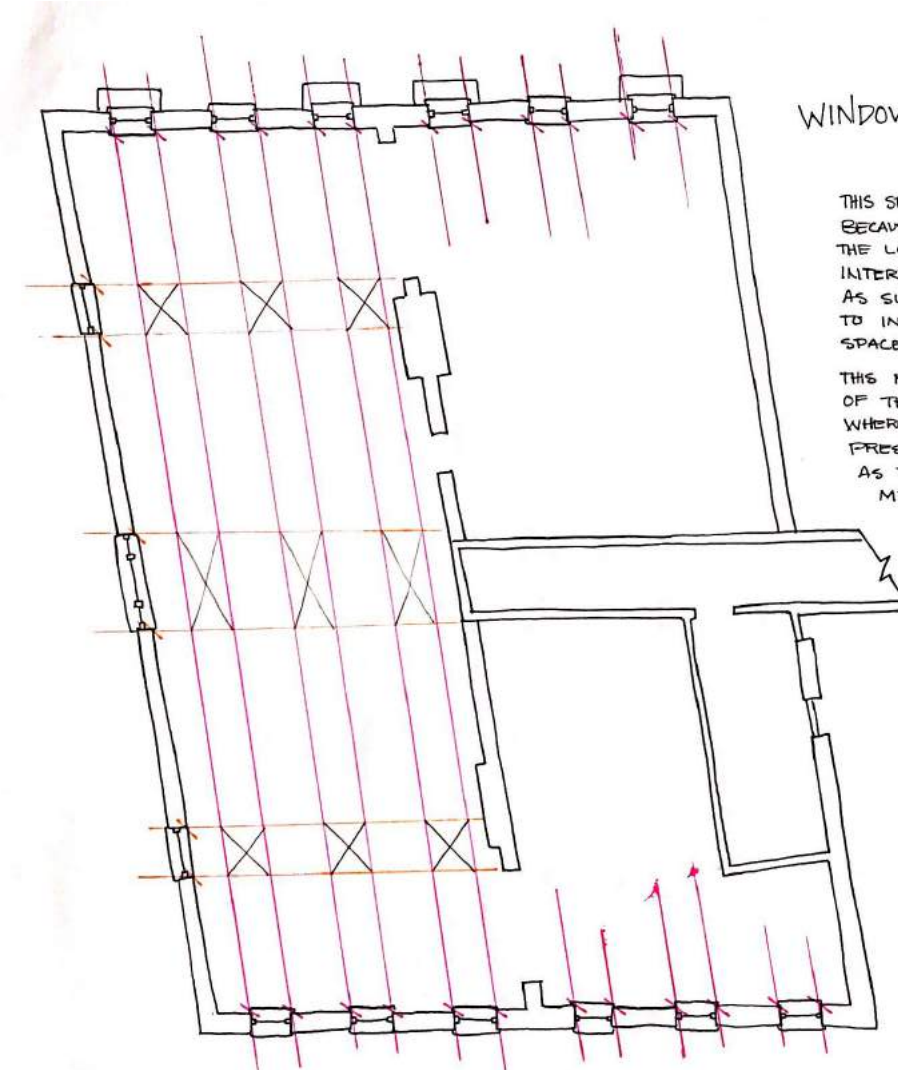 WINDOW
THIS S
BECAU
THE L
INTER
AS SU
TO IN
SPACE
THIS
OF TH
WHERE
PRES
AS
M